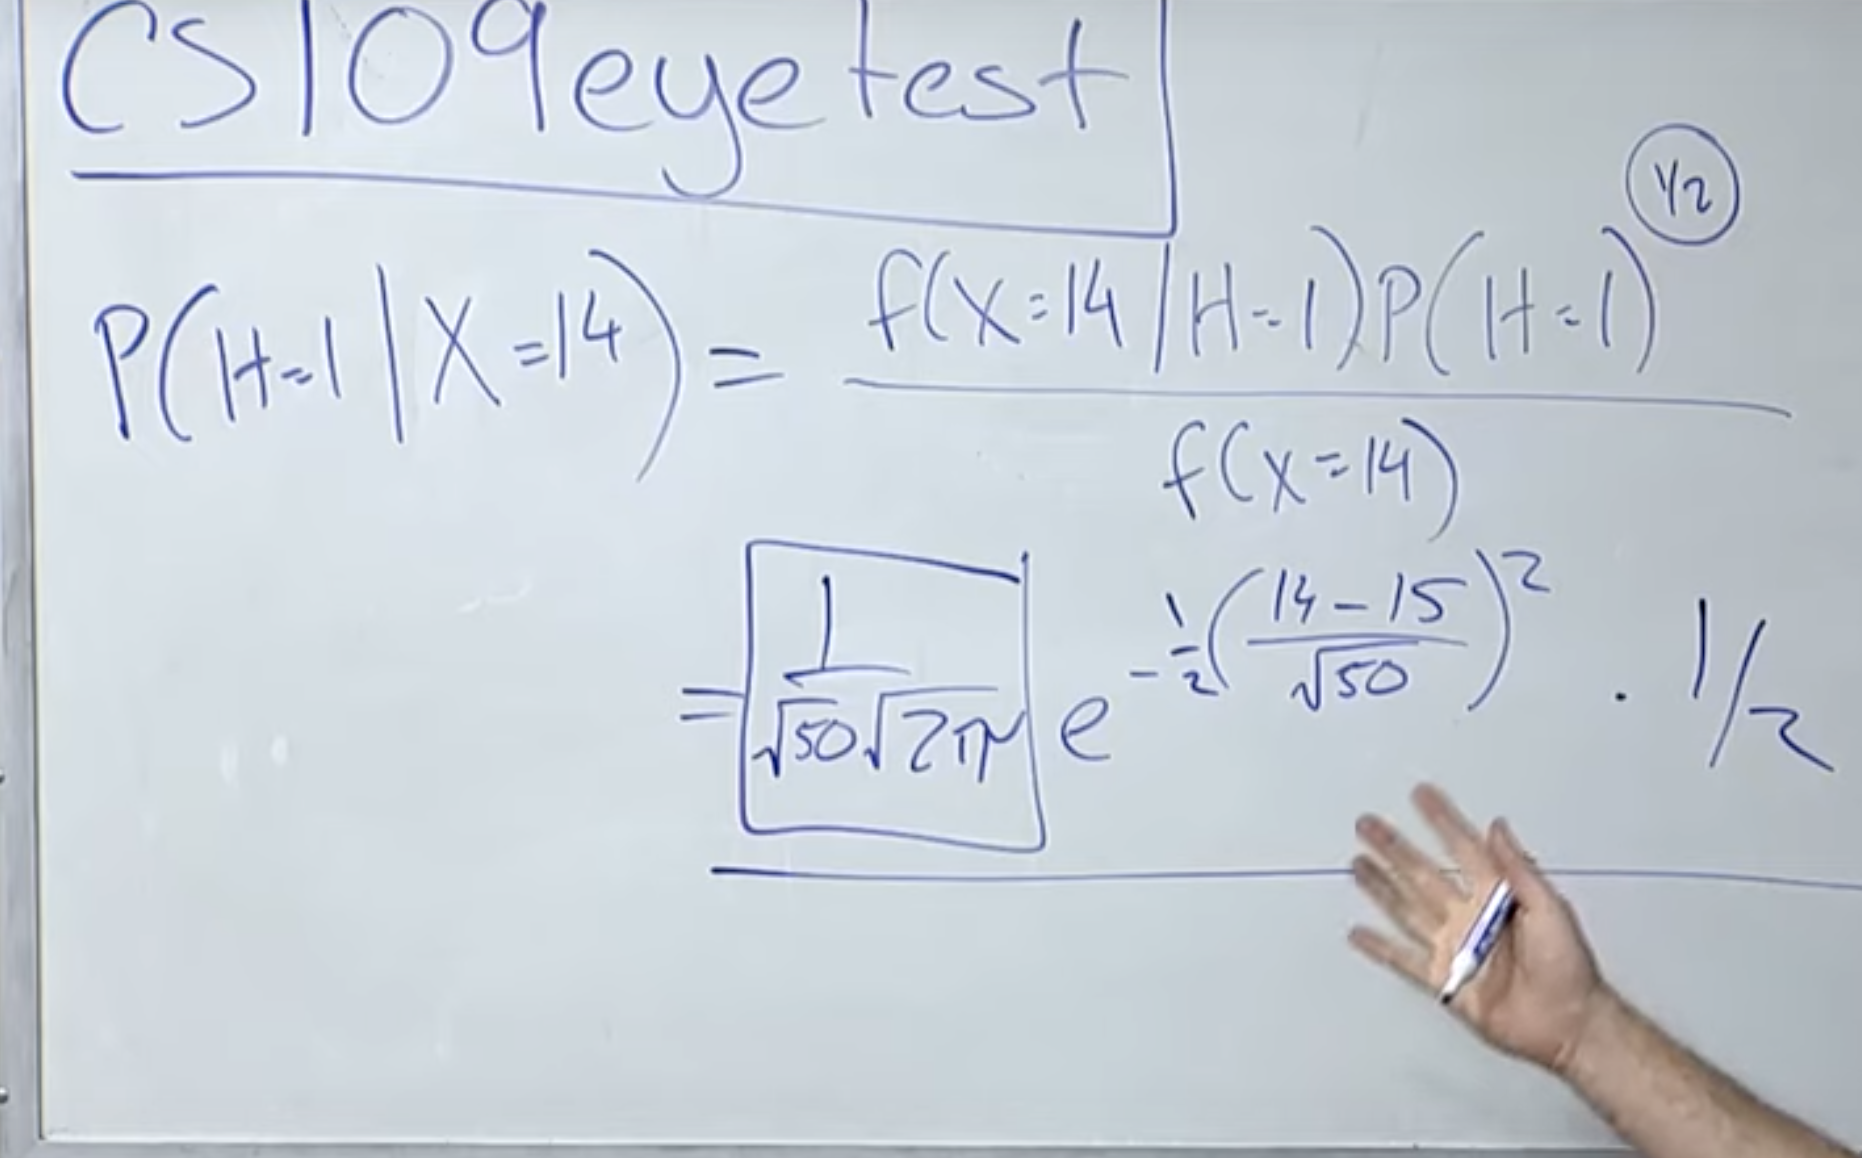 CS109eyetest
1/2
P(H=1 | X=14) = f(X=14 | H=1) P(H=1)
f(X=14)
= 1 / √50 √2π e^-1/2 (14-15 / √50)^2 · 1/2